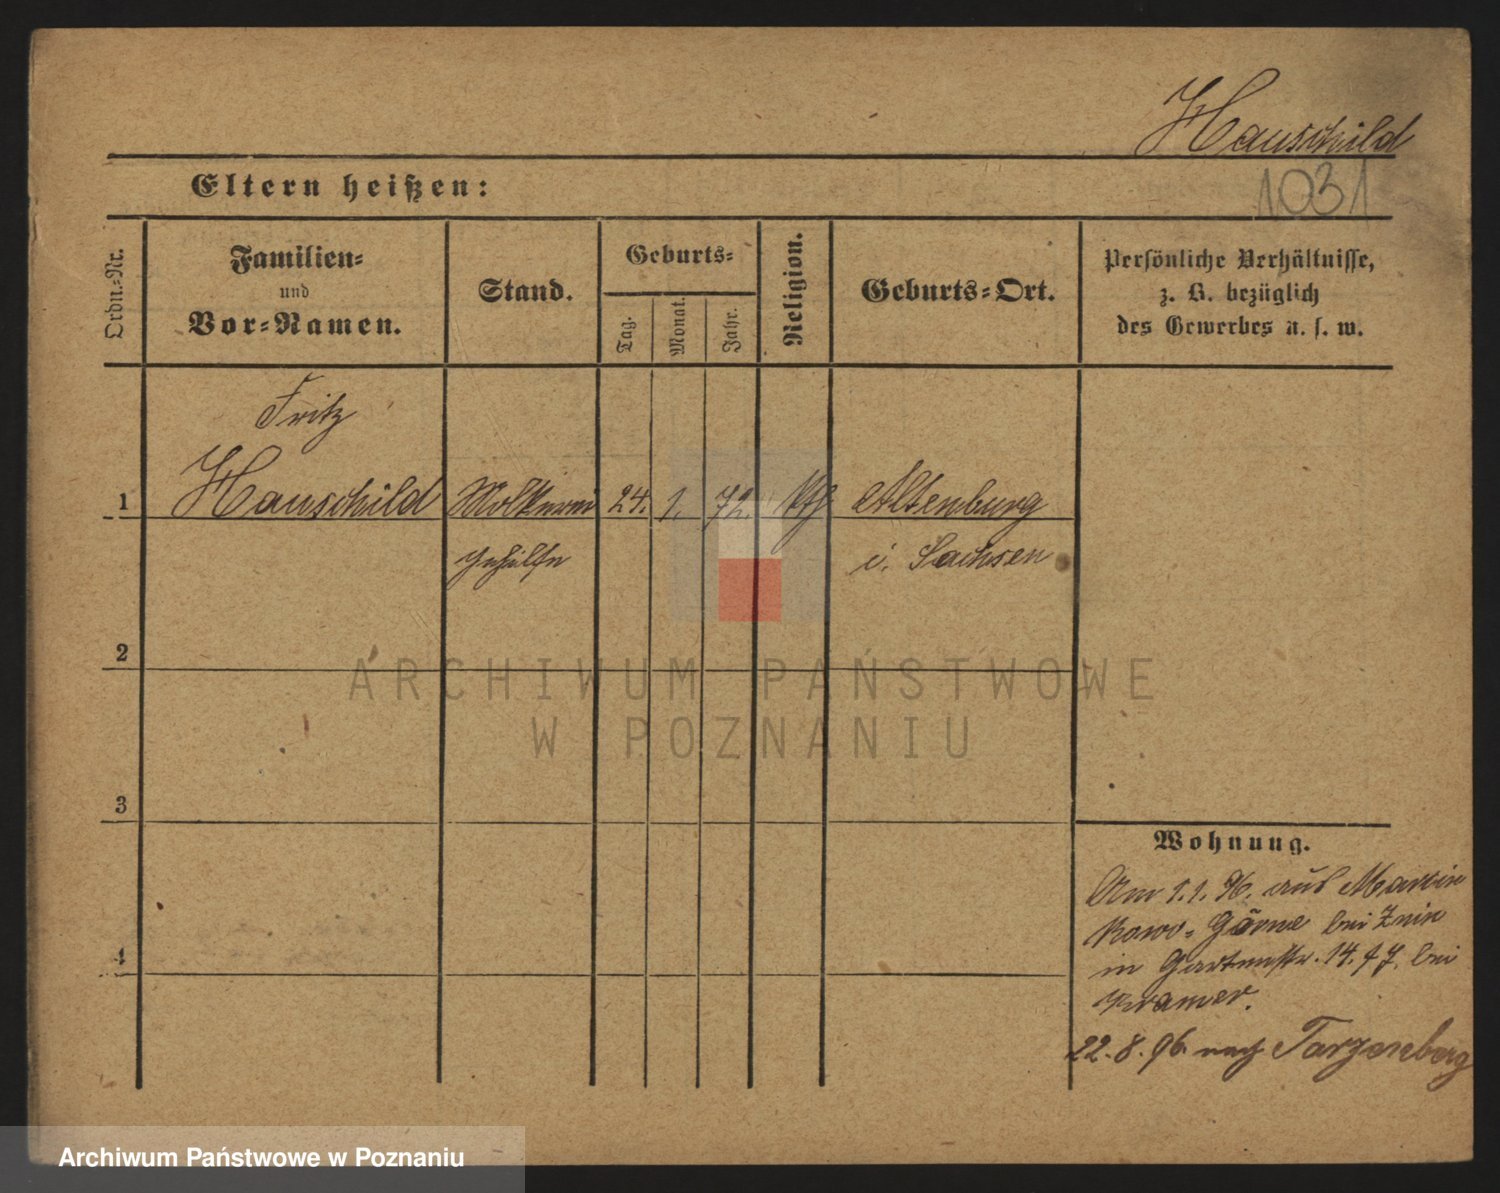 Hauschild
1031
Eltern heißen:
Ordn.-Nr.
Familien-
und
Vor-Namen.
Stand.
Geburts-
Tag.
Monat.
Jahr.
Religion.
Geburts-Ort.
Persönliche Verhältnisse,
z. B. bezüglich
des Gewerbes u. s. w.
Fritz
1 Hauschild Molkerei 24. 1. 72. Altenburg
Gehülfe i. Sachsen
2
3
4
ARCHIWUM PAŃSTWOWE
W POZNANIU
Wohnung.
Am 1.1.96. aus Marcin
kowo- bei Znin
in Gartenstr. 14. bei
Kramer.
22.8.96. nach
Archiwum Państwowe w Poznaniu